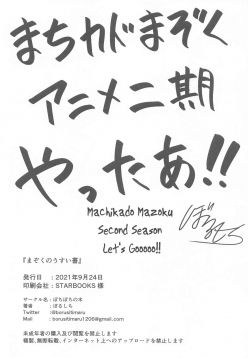 まちカドまぞく
アニメ二期
やったあ!!
Machikado Mazoku
Second Season
Let's Gooooo!!
ぼるしち
『まぞくのうすい書』
発行日　：2021年9月24日
印刷会社：STARBOOKS 様
サークル名：ぼちぼちの巣
著者　：ぼるしち
Twitter　：@borusitimaru
Mail　：borusitimaru1206@gmail.com
未成年者の購入及び閲覧を禁止します
複製、無断転載、インターネット上へのアップロードを禁止します